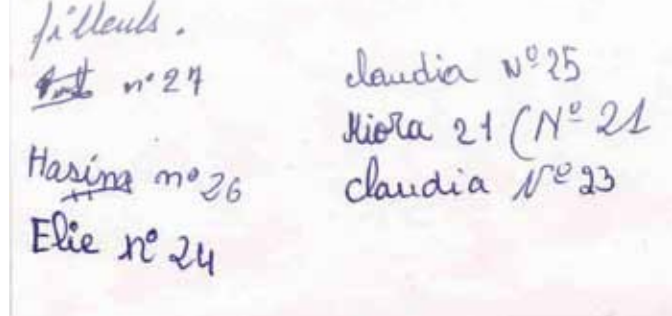 filleuls.
n° 27
Hasina n° 26
Elie n° 24
claudia N° 25
Miora 21 (N° 21
claudia N° 23